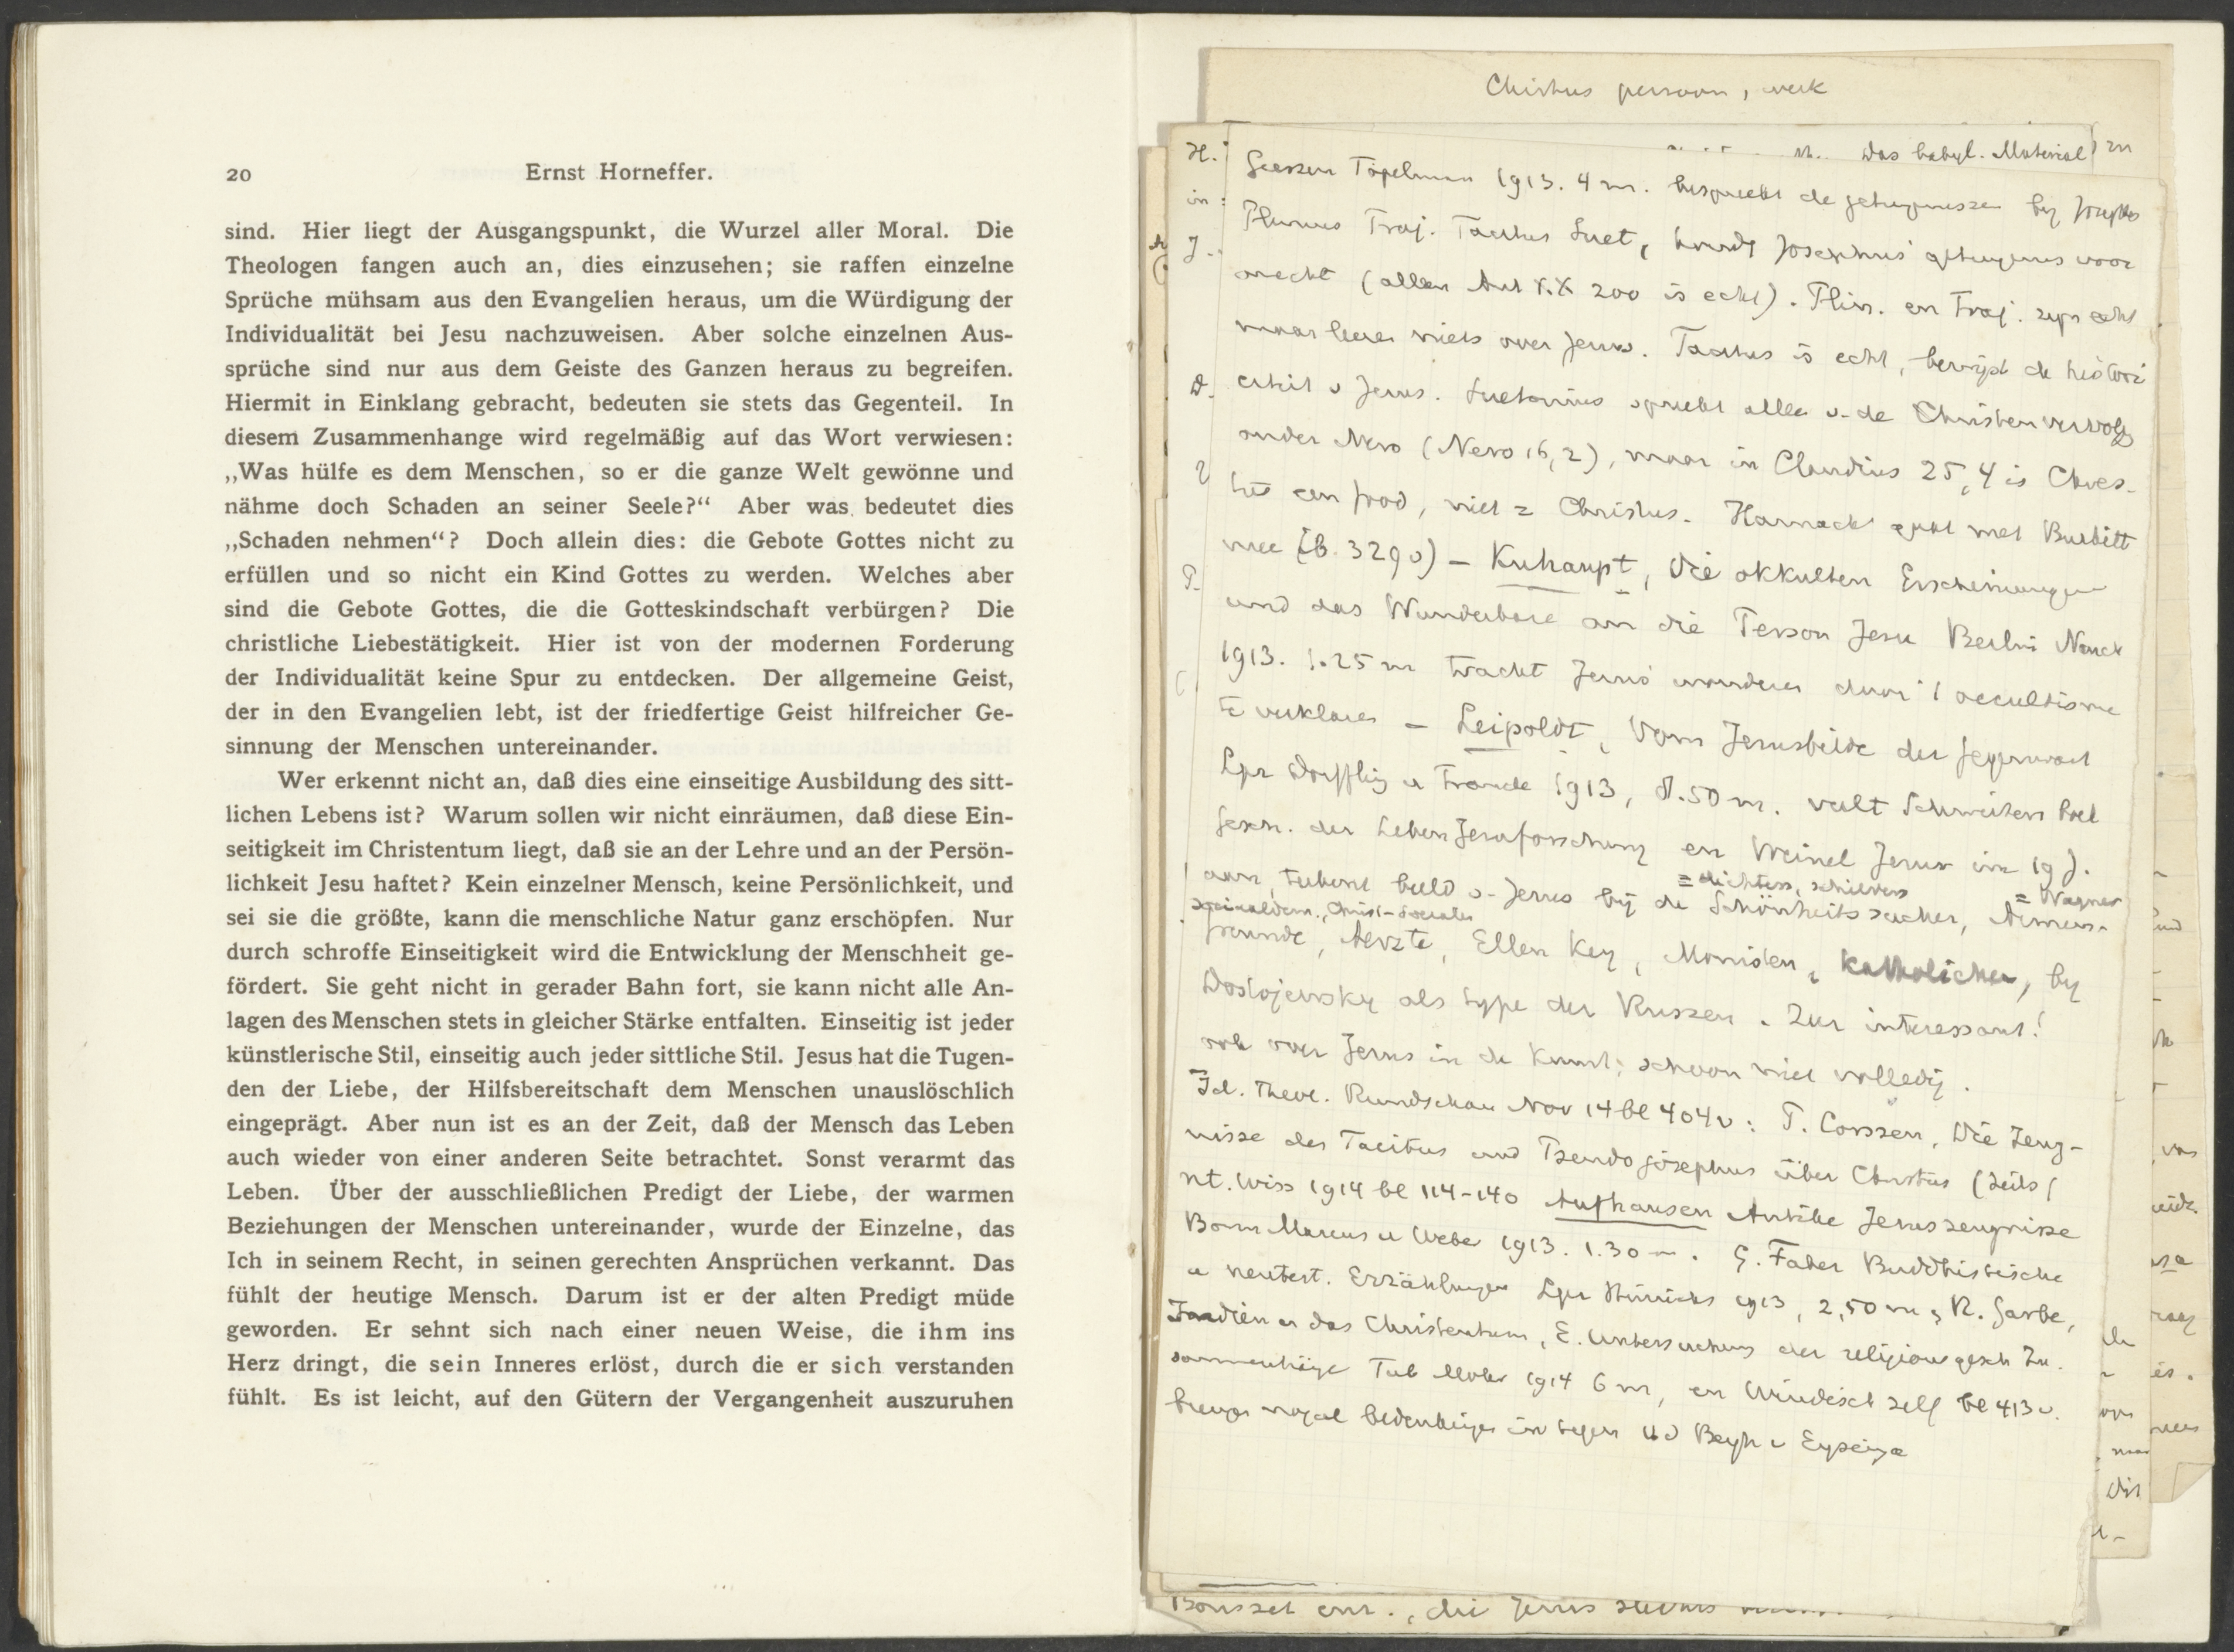 20
Ernst Horneffer.
sind. Hier liegt der Ausgangspunkt, die Wurzel aller Moral. Die
Theologen fangen auch an, dies einzusehen; sie raffen einzelne
Sprüche mühsam aus den Evangelien heraus, um die Würdigung der
Individualität bei Jesu nachzuweisen. Aber solche einzelnen Aus-
sprüche sind nur aus dem Geiste des Ganzen heraus zu begreifen.
Hiermit in Einklang gebracht, bedeuten sie stets das Gegenteil. In
diesem Zusammenhange wird regelmäßig auf das Wort verwiesen:
„Was hülfe es dem Menschen, so er die ganze Welt gewönne und
nähme doch Schaden an seiner Seele?“ Aber was bedeutet dies
„Schaden nehmen“? Doch allein dies: die Gebote Gottes nicht zu
erfüllen und so nicht ein Kind Gottes zu werden. Welches aber
sind die Gebote Gottes, die die Gotteskindschaft verbürgen? Die
christliche Liebestätigkeit. Hier ist von der modernen Forderung
der Individualität keine Spur zu entdecken. Der allgemeine Geist,
der in den Evangelien lebt, ist der friedfertige Geist hilfreicher Ge-
sinnung der Menschen untereinander.
Wer erkennt nicht an, daß dies eine einseitige Ausbildung des sitt-
lichen Lebens ist? Warum sollen wir nicht einräumen, daß diese Ein-
seitigkeit im Christentum liegt, daß sie an der Lehre und an der Persön-
lichkeit Jesu haftet? Kein einzelner Mensch, keine Persönlichkeit, und
sei sie die größte, kann die menschliche Natur ganz erschöpfen. Nur
durch schroffe Einseitigkeit wird die Entwicklung der Menschheit ge-
fördert. Sie geht nicht in gerader Bahn fort, sie kann nicht alle An-
lagen des Menschen stets in gleicher Stärke entfalten. Einseitig ist jeder
künstlerische Stil, einseitig auch jeder sittliche Stil. Jesus hat die Tugen-
den der Liebe, der Hilfsbereitschaft dem Menschen unauslöschlich
eingeprägt. Aber nun ist es an der Zeit, daß der Mensch das Leben
auch wieder von einer anderen Seite betrachtet. Sonst verarmt das
Leben. Über der ausschließlichen Predigt der Liebe, der warmen
Beziehungen der Menschen untereinander, wurde der Einzelne, das
Ich in seinem Recht, in seinen gerechten Ansprüchen verkannt. Das
fühlt der heutige Mensch. Darum ist er der alten Predigt müde
geworden. Er sehnt sich nach einer neuen Weise, die ihm ins
Herz dringt, die sein Inneres erlöst, durch die er sich verstanden
fühlt. Es ist leicht, auf den Gütern der Vergangenheit auszuruhen
Christus persoon, werk
Das babyl. Material zu
Giessen Töpelmann 1913. 4 m. bespreekt de getuigenissen by Josephus
Plinius Traj. Tacitus Suet, houdt Josephus' getuigenis voor
onecht (alleen Ant XX 200 is echt). Plin. en Traj. zijn echt
maar leeren niets over Jezus. Tacitus is echt, bewijst de histori
citeit v Jezus. Suetonius spreekt alleen v. de Christenvervolg
onder Nero (Nero 16,2), maar in Claudius 25,4 is Chres-
tus een Jood, niet = Christus. Harnack gaat met Burkitt
mee (b. 329 v) - Kuhaupt, Die okkulten Erscheinungen
und das Wunderbare an die Person Jesu Berlin Nauck
1913. 1.25 m tracht Jezus' wonderen door 't occultisme
te verklaren - Leipoldt, Vom Jesusbilde der Gegenwart
Lpz Dörffling u Francke 1913, 8.50 m. vult Schweitzers
Gesch. der Leben Jesuforschung en Weinel Jesus im 19 J.
= dichters, schilders
= Wagner
aan, tekent beeld v. Jezus bij de Schönheitssucher, Armen-
socialdem., Christ-Socialen
freunde, Aerzte, Ellen Key, Monisten, Katholieken, by
Dostojewsky als type der Russen. Zeer interessant!
ook over Jezus in de Kunst; schoon niet volledig.
Id. Theol. Rundschau Nov 14 bl 404 v: P. Corssen, Die Zeug-
nisse des Tacitus und Pseudojosephus über Christus (Zeits f
nt. Wiss 1914 bl 114-140 Aufhauser Antike Jesuszeugnisse
Bonn Marcus u Weber 1913. 1.30 m. G. Faber Buddhistische
u neutest. Erzählungen Lpz Hinrichs 1913, 2,50 m, R. Garbe,
Indien u das Christentum, E. Untersuchung der religionsgesch Zu.
sammenhänge Tub Mohr 1914 6 m, en Windisch zelf bl 413 v.
Bousset